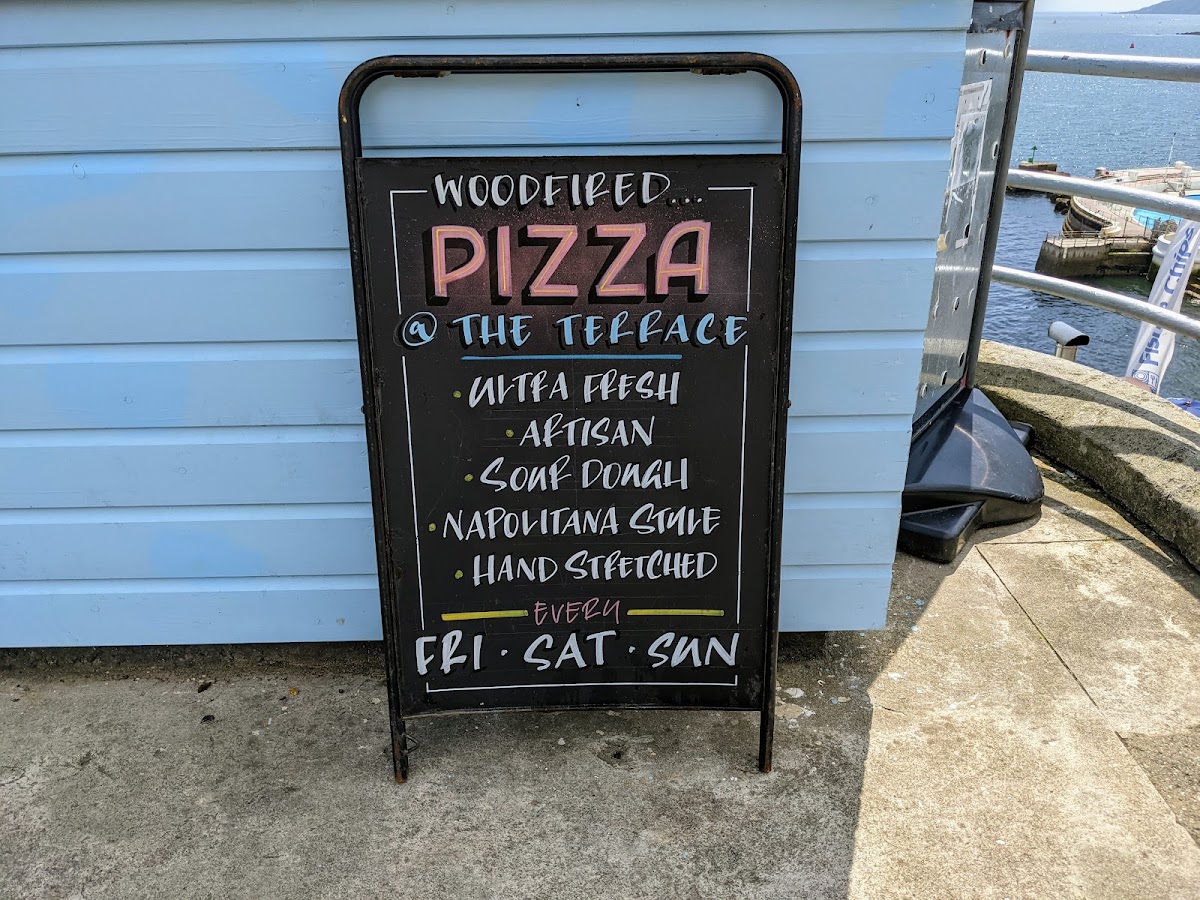 WOODFIRED...
PIZZA
@ THE TERRACE
• ULTRA FRESH
• ARTISAN
• SOUR DOUGH
• NAPOLITANA STYLE
• HAND STRETCHED
EVERY
FRI • SAT • SUN
Fish & Chips